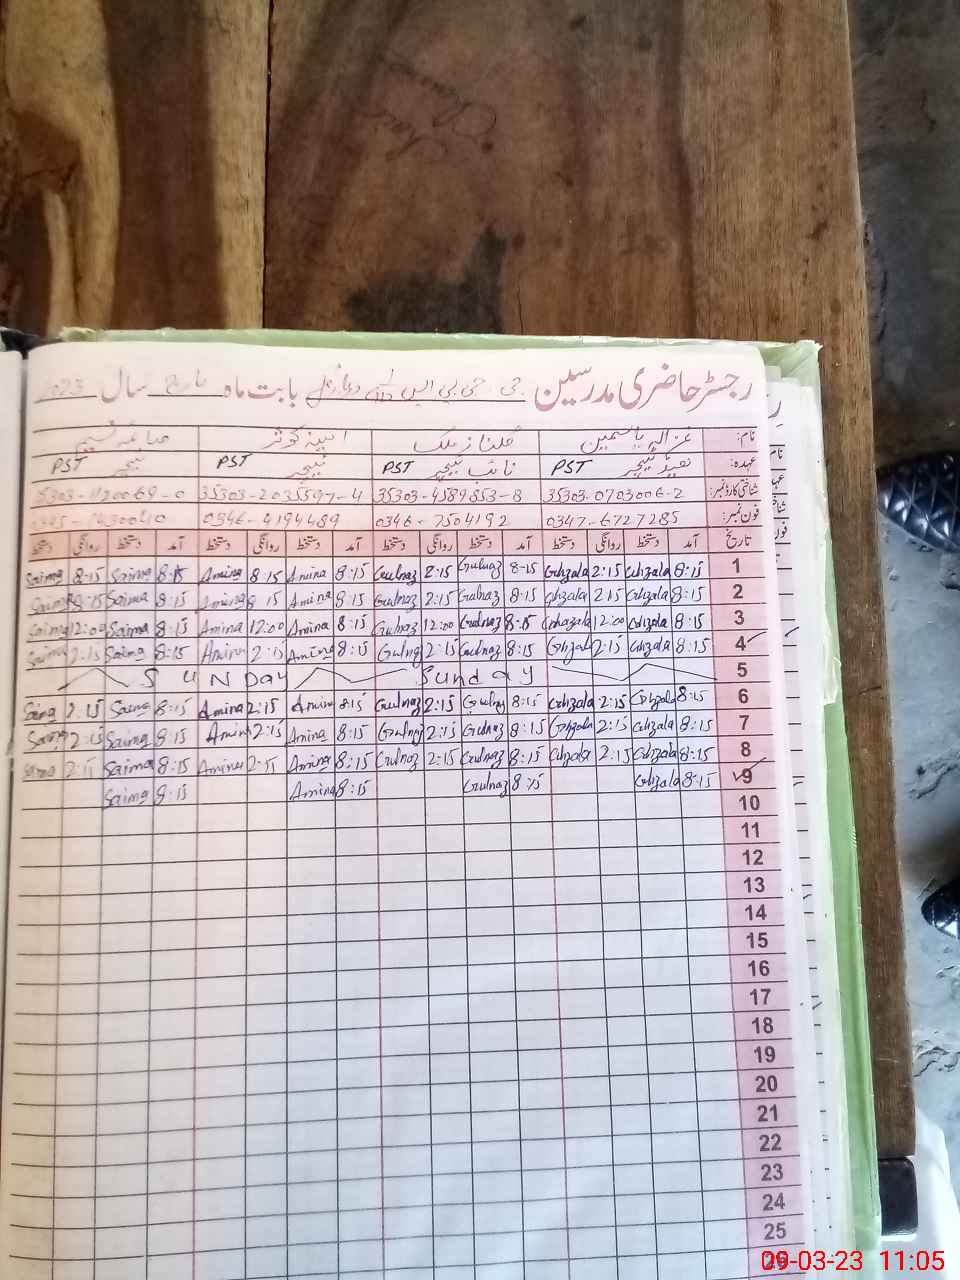 رجسٹر حاضری مدرسین جی جی پی ایس بابت ماہ مارچ سال 2023
نام: غزالہ یاسمین گلناز ملک امینہ کوثر صائمہ نسیم
عہدہ: ہیڈ ٹیچر PST نائب ٹیچر PST ٹیچر PST ٹیچر PST
شناختی کارڈ نمبر: 35303-0703006-2 35303-4589853-8 35303-2035597-4 35303-1120069-0
فون نمبر: 0347-6727285 0346-7504192 0346-4194489
تاریخ آمد دستخط روانگی دستخط آمد دستخط روانگی دستخط آمد دستخط روانگی دستخط آمد دستخط روانگی دستخط
1 8:15 Ghzala 2:15 Ghzala 8:15 Gulnaz 2:15 Gulnaz 8:15 Amina 8:15 Amina 8:15 Saima 8:15 Saima
2 8:15 Ghzala 2:15 Ghzala 8:15 Gulnaz 2:15 Gulnaz 8:15 Amina 8:15 Amina 8:15 Saima 8:15 Saima
3 8:15 Ghzala 12:00 Ghazala 8:15 Gulnaz 12:00 Gulnaz 8:15 Amina 12:00 Amina 8:15 Saima 12:00 Saima
4 8:15 Ghzala 2:15 Ghzala 8:15 Gulnaz 2:15 Gulnaz 8:15 Amina 2:15 Amina 8:15 Saima 2:15 Saima
5 Sunday SUNDay
6 8:15 Ghzala 2:15 Ghzala 8:15 Gulnaz 2:15 Gulnaz 8:15 Amina 2:15 Amina 8:15 Saima 2:15 Saima
7 8:15 Ghzala 2:15 Ghzala 8:15 Gulnaz 2:15 Gulnaz 8:15 Amina 2:15 Amina 8:15 Saima 2:15 Saima
8 8:15 Ghzala 2:15 Ghzala 8:15 Gulnaz 2:15 Gulnaz 8:15 Amina 2:15 Amina 8:15 Saima 2:15 Saima
9 8:15 Ghzala 8:15 Gulnaz 8:15 Amina 8:15 Saima
10
11
12
13
14
15
16
17
18
19
20
21
22
23
24
25
26
09-03-23 11:05